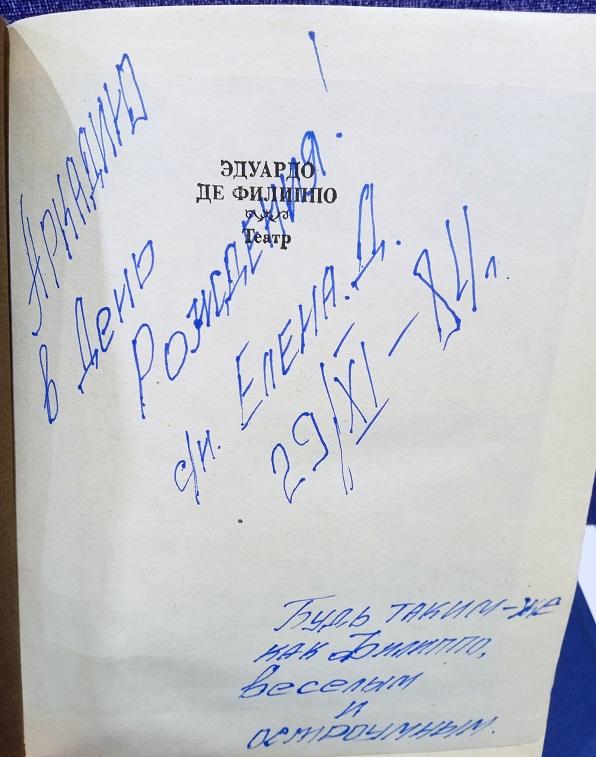 ЭДУАРДО
ДЕ ФИЛИППО
Театр
Аркадию
в День
Рождения!
с/и. Елена. Д.
29/XI – 84 г.
Будь таким-же
как Филиппо,
веселым
и
остроумным.